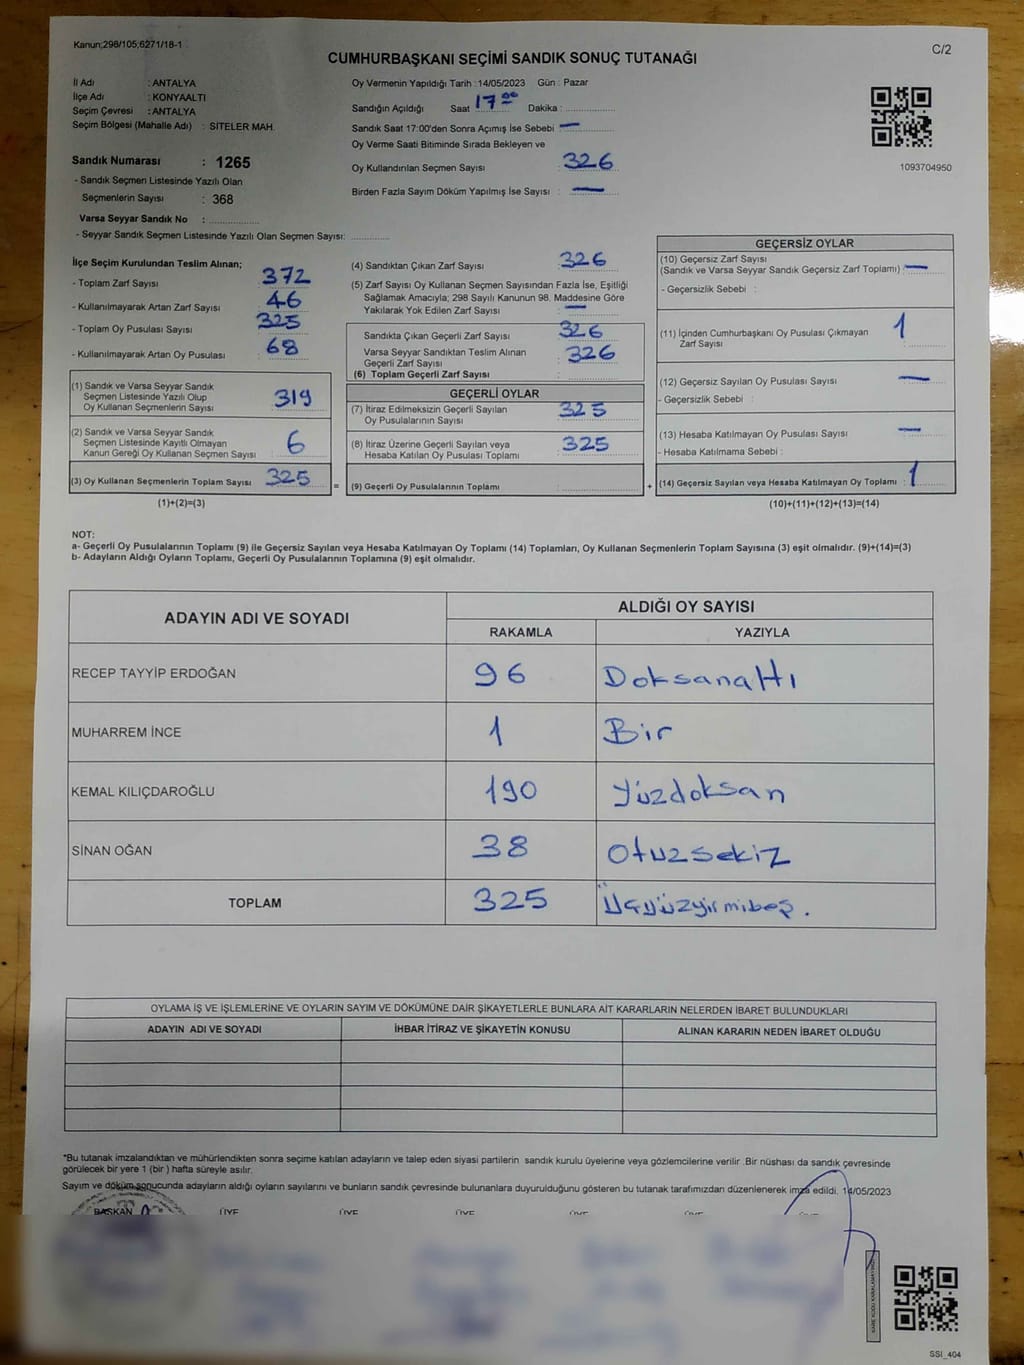 Kanun;298/105;6271/18-1
C/2
CUMHURBAŞKANI SEÇİMİ SANDIK SONUÇ TUTANAĞI
İl Adı : ANTALYA
İlçe Adı : KONYAALTI
Seçim Çevresi : ANTALYA
Seçim Bölgesi (Mahalle Adı) : SİTELER MAH.
Sandık Numarası : 1265
- Sandık Seçmen Listesinde Yazılı Olan
Seçmenlerin Sayısı : 368
Varsa Seyyar Sandık No :
- Seyyar Sandık Seçmen Listesinde Yazılı Olan Seçmen Sayısı:
Oy Vermenin Yapıldığı Tarih : 14/05/2023 Gün : Pazar
Sandığın Açıldığı Saat 17 00 Dakika :
Sandık Saat 17:00'den Sonra Açımış İse Sebebi : —
Oy Verme Saati Bitiminde Sırada Bekleyen ve
Oy Kullandırılan Seçmen Sayısı : 326
Birden Fazla Sayım Döküm Yapılmış İse Sayısı : —
1093704950
İlçe Seçim Kurulundan Teslim Alınan;
- Toplam Zarf Sayısı : 372
- Kullanılmayarak Artan Zarf Sayısı : 46
- Toplam Oy Pusulası Sayısı : 325
- Kullanılmayarak Artan Oy Pusulası : 68
(1) Sandık ve Varsa Seyyar Sandık
Seçmen Listesinde Yazılı Olup
Oy Kullanan Seçmenlerin Sayısı : 319
(2) Sandık ve Varsa Seyyar Sandık
Seçmen Listesinde Kayıtlı Olmayan
Kanun Gereği Oy Kullanan Seçmen Sayısı : 6
(3) Oy Kullanan Seçmenlerin Toplam Sayısı : 325
(1)+(2)=(3)
(4) Sandıktan Çıkan Zarf Sayısı : 326
(5) Zarf Sayısı Oy Kullanan Seçmen Sayısından Fazla İse, Eşitliği
Sağlamak Amacıyla; 298 Sayılı Kanunun 98. Maddesine Göre
Yakılarak Yok Edilen Zarf Sayısı : —
Sandıkta Çıkan Geçerli Zarf Sayısı : 326
Varsa Seyyar Sandıktan Teslim Alınan
Geçerli Zarf Sayısı : 326
(6) Toplam Geçerli Zarf Sayısı :
GEÇERLİ OYLAR
(7) İtiraz Edilmeksizin Geçerli Sayılan
Oy Pusulalarının Sayısı : 325
(8) İtiraz Üzerine Geçerli Sayılan veya
Hesaba Katılan Oy Pusulası Toplamı : 325
= (9) Geçerli Oy Pusulalarının Toplamı :
GEÇERSİZ OYLAR
(10) Geçersiz Zarf Sayısı
(Sandık ve Varsa Seyyar Sandık Geçersiz Zarf Toplamı) : —
- Geçersizlik Sebebi :
(11) İçinden Cumhurbaşkanı Oy Pusulası Çıkmayan
Zarf Sayısı : 1
(12) Geçersiz Sayılan Oy Pusulası Sayısı : —
- Geçersizlik Sebebi :
(13) Hesaba Katılmayan Oy Pusulası Sayısı : —
- Hesaba Katılmama Sebebi :
+ (14) Geçersiz Sayılan veya Hesaba Katılmayan Oy Toplamı : 1
(10)+(11)+(12)+(13)=(14)
NOT:
a- Geçerli Oy Pusulalarının Toplamı (9) ile Geçersiz Sayılan veya Hesaba Katılmayan Oy Toplamı (14) Toplamları, Oy Kullanan Seçmenlerin Toplam Sayısına (3) eşit olmalıdır. (9)+(14)=(3)
b- Adayların Aldığı Oyların Toplamı, Geçerli Oy Pusulalarının Toplamına (9) eşit olmalıdır.
ADAYIN ADI VE SOYADI
ALDIĞI OY SAYISI
RAKAMLA YAZIYLA
RECEP TAYYİP ERDOĞAN 96 Doksanaltı
MUHARREM İNCE 1 Bir
KEMAL KILIÇDAROĞLU 190 Yüzdoksan
SİNAN OĞAN 38 Otuzsekiz
TOPLAM 325 Üçyüzyirmibeş.
OYLAMA İŞ VE İŞLEMLERİNE VE OYLARIN SAYIM VE DÖKÜMÜNE DAİR ŞİKAYETLERLE BUNLARA AİT KARARLARIN NELERDEN İBARET BULUNDUKLARI
ADAYIN ADI VE SOYADI İHBAR İTİRAZ VE ŞİKAYETİN KONUSU ALINAN KARARIN NEDEN İBARET OLDUĞU
*Bu tutanak imzalandıktan ve mühürlendikten sonra seçime katılan adayların ve talep eden siyasi partilerin sandık kurulu üyelerine veya gözlemcilerine verilir .Bir nüshası da sandık çevresinde
görülecek bir yere 1 (bir ) hafta süreyle asılır.
Sayım ve döküm sonucunda adayların aldığı oyların sayılarını ve bunların sandık çevresinde bulunanlara duyurulduğunu gösteren bu tutanak tarafımızdan düzenlenerek imza edildi. 14/05/2023
BAŞKAN ÜYE ÜYE ÜYE ÜYE ÜYE
SSI_404